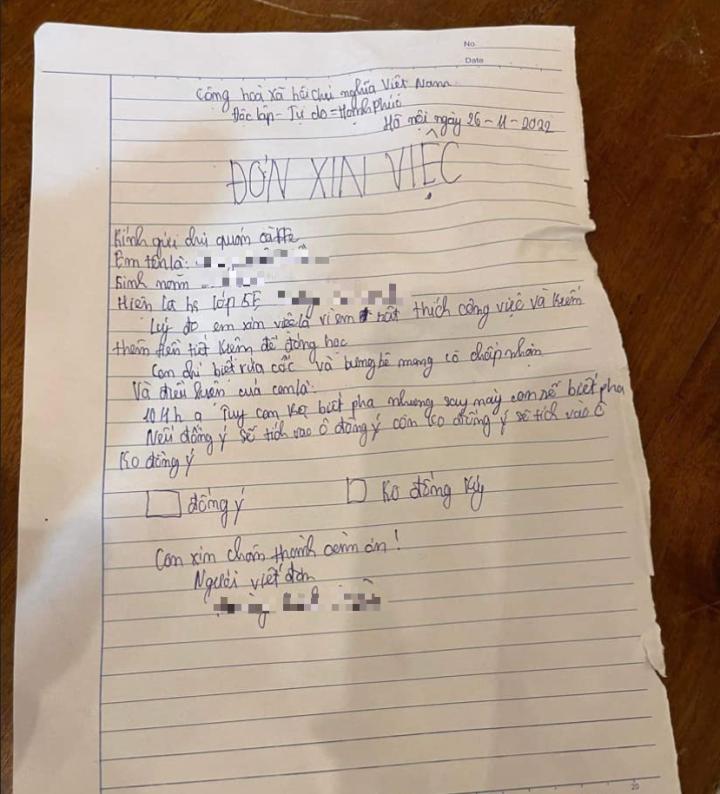 No
Date
Cộng hoà xã hội chủ nghĩa Việt Nam
Độc lập - Tự do = Hạnh Phúc
Hà nội ngày 26-11-2022
ĐƠN XIN VIỆC
Kính gửi chủ quán cà fe
Em tên là:
Sinh năm
Hiện là hs lớp 5E
Lý do em xin việc là vì em rất thích công việc và kiếm
thêm tiền tiết kiệm để đóng học
Con chỉ biết rửa cốc và bưng bê mong cô chấp nhận
Và điều kiện của con là:
10k 1h ạ Tuy con ko biết pha nhưng sau này con sẽ biết pha
Nếu đồng ý sẽ tích vào ô đồng ý còn ko đồng ý sẽ tích vào ô
Ko đồng ý
đồng ý
Ko đồng ký
Con xin chân thành cảm ơn!
Người viết đơn
20